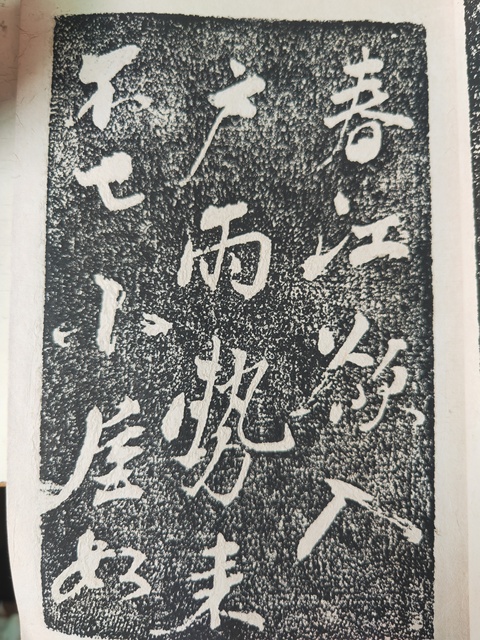 春江欲入
户雨勢来
不已小屋如